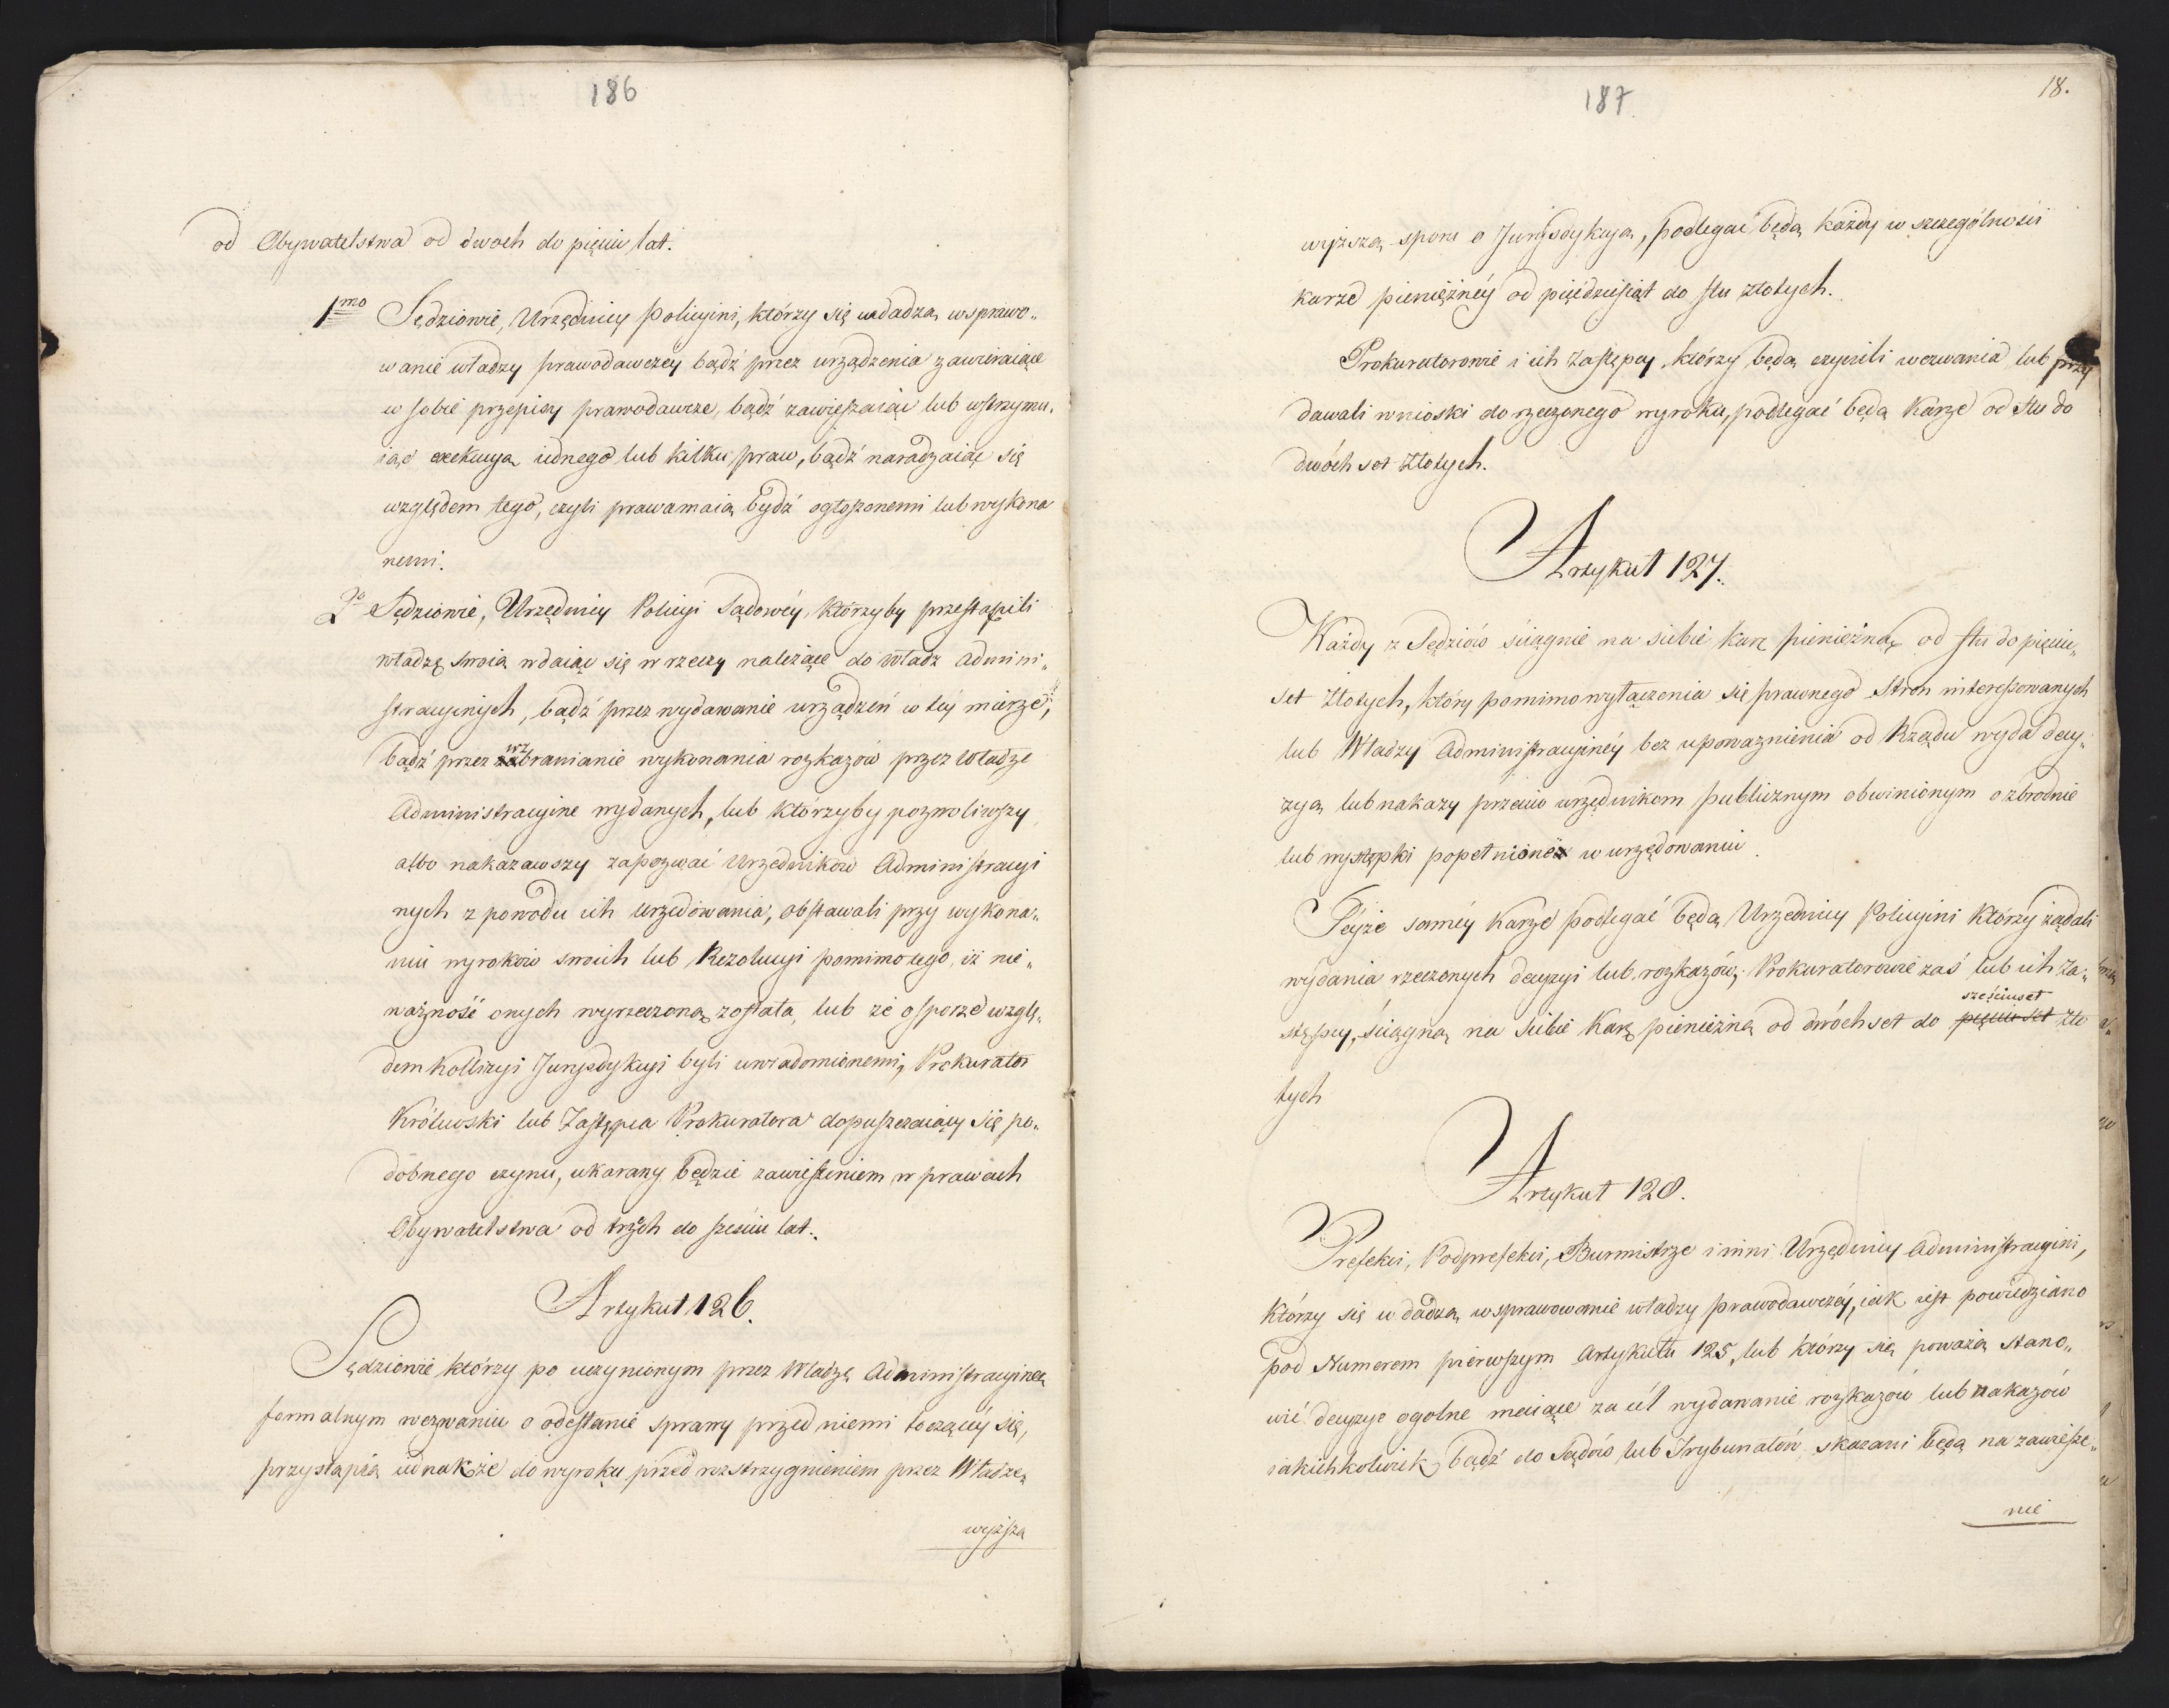 186
od Obywatelstwa od dwoch do pięciu lat.
1mo Sędziowie, Urzędnicy Policyini, którzy się wdadzą w sprawo„
wanie władzy prawodawczey bądź przez urządzenia zawieraiące
w sobie przepisy prawodawcze, bądź zawieszaiąc lub wstrzymu„
iąc exekucyą iednego lub kilku praw, bądź naradzaiąc się
względem tego, czyli prawa maią bydź ogłoszonemi lub wykona
nemi.
2o Sędziowie, Urzędnicy Policyi Sądowéy, którzyby przestąpili
władzę swoią wdaiąc się w rzeczy należące do władz admini„
stracyinych, bądź przez wydawanie urządzeń w téy mierze,
bądź przez wzbranianie wykonania rozkazów przez Władze
Administracyine wydanych, lub którzyby pozwoliwszy
albo nakazawszy zapozwać Urzędników Administracyi
nych z powodu ich urzędowania, obstawali przy wykona„
niu wyroków swoich lub Rezolucyi pomimo tego, iż nie„
ważność onych wyrzeczoną została, lub że o sporze wzglę„
dem Kollizyi Juryzdykcyi byli uwiadomionemi, Prokurator
Królewski lub Zastępca Prokuratora dopuszczaiący się po„
dobnego czynu, ukarany będzie zawieszeniem w prawach
Obywatelstwa od trzech do sześciu lat.
Artykuł 126.
Sędziowie którzy po uczynionym przez Władzę Administracyiną
formalnym wezwaniu o odesłanie sprawy przed niemi toczącéy się,
przystąpią iednakże do wyroku przed rozstrzygnieniem przez Władzę
wyższą
187
18.
wyższą sporu o Juryzdykcyą, podlegać będą każdy w szczególności
karze pieniężnéy od pięćdziesiąt do stu złotych.
Prokuratorowie i ich Zastępcy, którzy będą czynili wezwania lub przy
dawali wnioski do rzeczonego wyroku, podlegać będą karze od stu do
dwóch set złotych.
Artykuł 127.
Każdy z Sędziów ściągnie na siebie karę pieniężną od stu do pięciu„
set złotych, który pomimo wyłączenia się prawnego Stron interessowanych
lub Władzy Administracyinéy bez upoważnienia od Rządu wyda decy„
zyą lub nakazy przeciw urzędnikom publicznym obwinionym o zbrodnie
lub występki popełnione w urzędowaniu
Téyże saméy karze podlegać będą Urzędnicy Policyini którzy żądali
wydania rzeczonych decyzyi lub rozkazów; Prokuratorowie zaś lub ich Za„
stępcy, ściągną na siebie karę pieniężną od dwóchset do pięciu set sześciuset zło
tych
Artykuł 128.
Prefekci, Podprefekci, Burmistrze i inni Urzędnicy Administracyini,
którzy się wdadzą w sprawowanie władzy prawodawczéy, iak iest powiedziano
pod Numerem pierwszym Artykułu 125, lub którzy się poważą stano„
wić decyzye ogolne maiące za cél wydawanie rozkazów lub nakazów
iakichkolwiek, bądź do Sądów lub Trybunałów, skazani będą na zawiesze„
nie